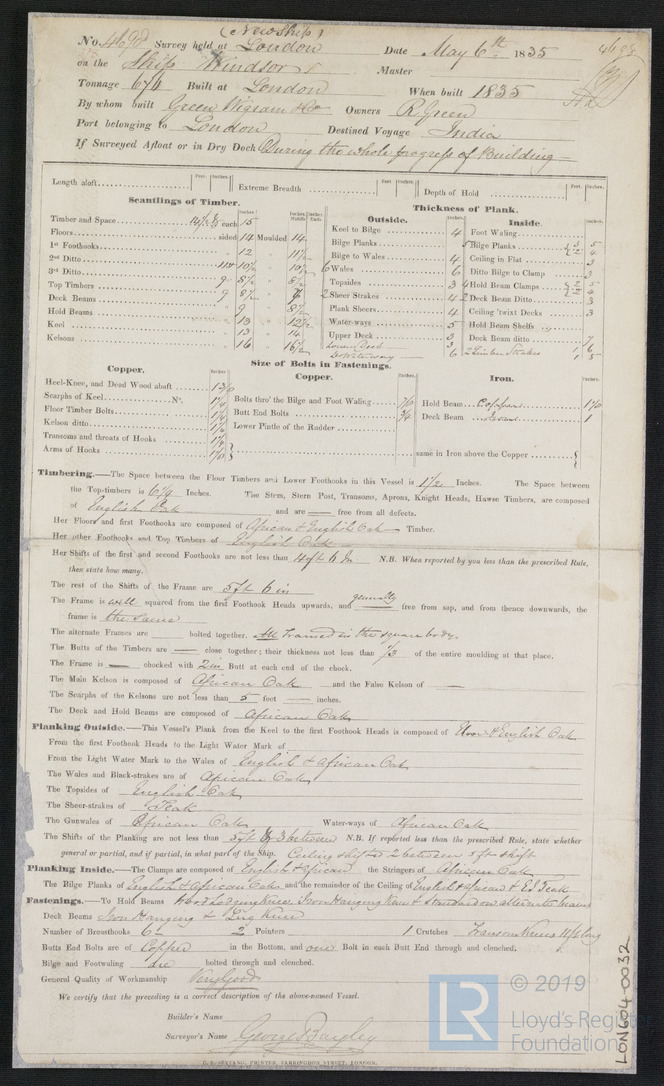 (New Ship)
No. Survey held at London Date May 6th 1835
on the Ship Windsor Master
Tonnage Built at London When built 1835
By whom built Green Wigram & Co Owners R Green
Port belonging to London Destined Voyage India
If Surveyed Afloat or in Dry Dock During the whole progress of Building
Length aloft Feet. Inches. Extreme Breadth Feet. Inches. Depth of Hold Feet. Inches.
Scantlings of Timber.
Timber and Space each 15
Floors sided 14 Moulded 14
1st Foothooks 12 11½
2nd Ditto 10½ 10½
3rd Ditto 9 8½ 8½
Top Timbers 9 8½
Deck Beams 9 8½
Hold Beams 13 12½
Keel 13 14
Kelsons 16 16½
Thickness of Plank.
Outside.
Keel to Bilge 4
Bilge Planks 5
Bilge to Wales 4
Wales 6
Topsides 3
Sheer Strakes 4
Plank Sheers 4
Water-ways 5
Upper Deck 3
Lower Deck 3
Do Waterway 6
Inside.
Foot Waling
Bilge Planks
Ceiling in Flat 3
Ditto Bilge to Clamp 3
Hold Beam Clamps
Deck Beam Ditto 3
Ceiling 'twixt Decks 3
Hold Beam Shelfs
Deck Beam ditto
2 Limber Strakes
Size of Bolts in Fastenings.
Copper.
Heel-Knee, and Dead Wood abaft
Scarphs of Keel No.
Floor Timber Bolts
Kelson ditto
Transoms and throats of Hooks
Arms of Hooks
Copper.
Bolts thro' the Bilge and Foot Waling 7/8
Butt End Bolts ¾
Lower Pintle of the Rudder
Iron.
Hold Beam Copper
Deck Beam Iron 1
same in Iron above the Copper
Timbering.—The Space between the Floor Timbers and Lower Foothooks in this Vessel is 1½ Inches. The Space between
the Top-timbers is Inches. The Stem, Stern Post, Transoms, Aprons, Knight Heads, Hawse Timbers, are composed
of English Oak and are — free from all defects.
Her Floors and first Foothooks are composed of African & English Oak Timber.
Her other Foothooks and Top Timbers of English Oak
Her Shifts of the first and second Foothooks are not less than 4 ft 6 In N.B. When reported by you less than the prescribed Rule,
then state how many.
The rest of the Shifts of the Frame are 5 ft 6 in
The Frame is well squared from the first Foothook Heads upwards, and generally free from sap, and from thence downwards, the
frame is the same
The alternate Frames are bolted together. All Framed in the square body.
The Butts of the Timbers are — close together; their thickness not less than 1/3 of the entire moulding at that place.
The Frame is — chocked with 2 in Butt at each end of the chock.
The Main Kelson is composed of African Oak and the False Kelson of —
The Scarphs of the Kelsons are not less than 5 feet — inches.
The Deck and Hold Beams are composed of African Oak
Planking Outside.—This Vessel's Plank from the Keel to the first Foothook Heads is composed of & English Oak
From the first Foothook Heads to the Light Water Mark of
From the Light Water Mark to the Wales of English & African Oak
The Wales and Black-strakes are of African Oak
The Topsides of English Oak
The Sheer-strakes of Teak
The Gunwales of African Oak Water-ways of African Oak
The Shifts of the Planking are not less than 5 ft & 3 between N.B. If reported less than the prescribed Rule, state whether
general or partial, and if partial, in what part of the Ship. Ceiling shifted 2 between 5 ft shift
Planking Inside.—The Clamps are composed of English & African the Stringers of African Oak
The Bilge Planks of English & African Oak and the remainder of the Ceiling of English & African & Teak
Fastenings.—To Hold Beams Iron Hanging Knees & Standard on alternate beams
Deck Beams Iron Hanging & Lug Knees
Number of Breasthooks 6 2 Pointers 1 Crutches Transom Knees
Butts End Bolts are of Copper in the Bottom, and one Bolt in each Butt End through and clenched.
Bilge and Footwaling are bolted through and clenched.
General Quality of Workmanship Very Good
We certify that the preceding is a correct description of the above-named Vessel.
Builder's Name
Surveyor's Name George Bayley
PRINTER, FARRINGDON STREET, LONDON.
LR © 2019
Lloyd's Register
Foundation
LON604-0032